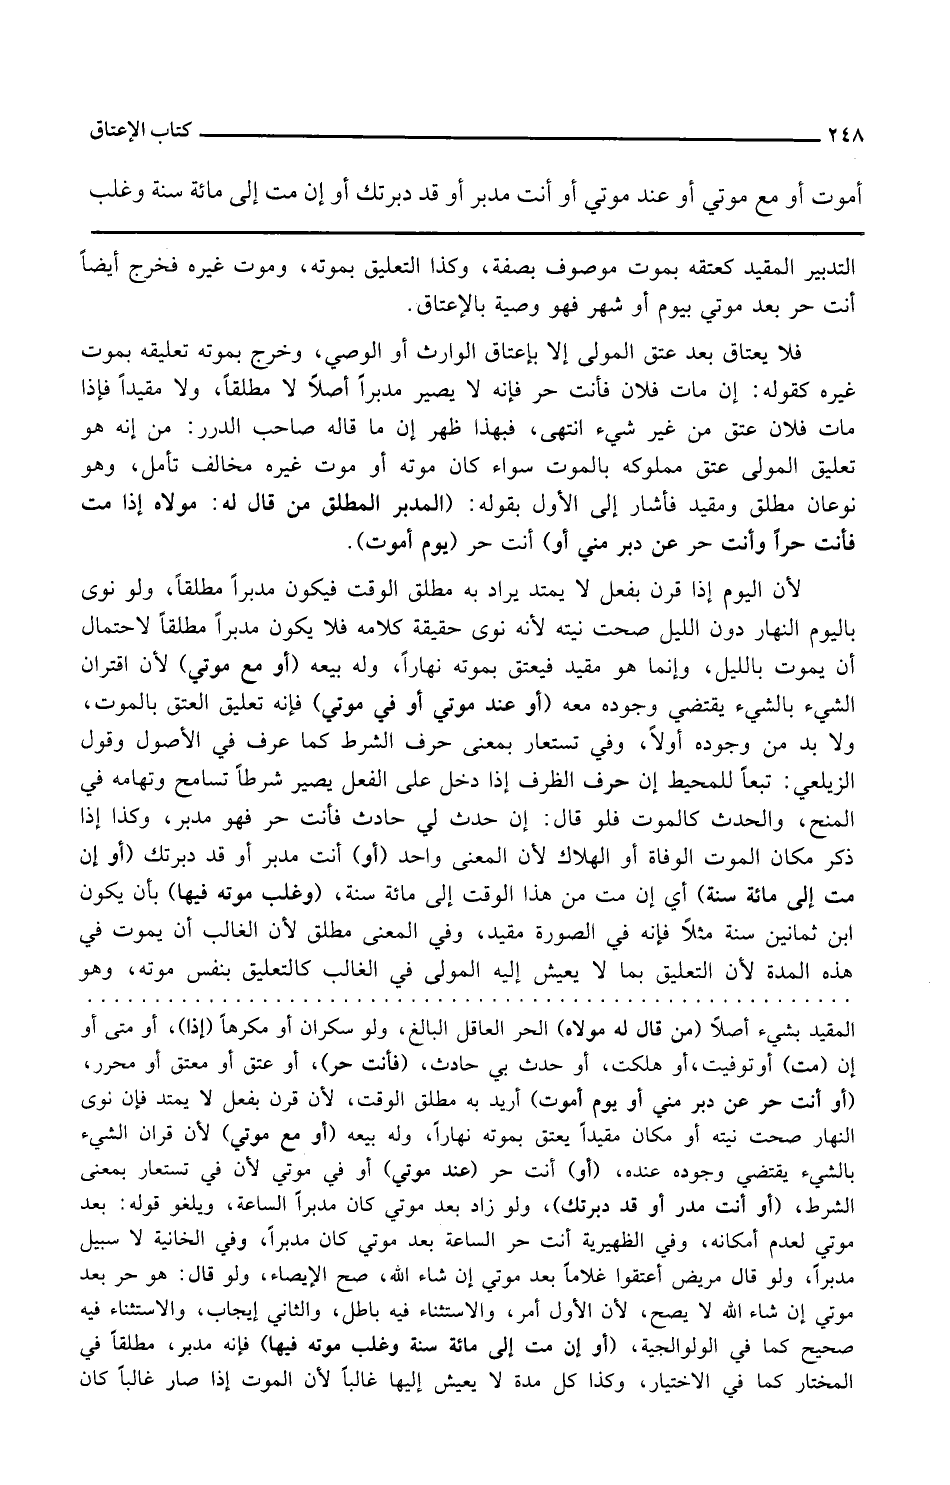 ٢٤٨ كتاب الإعتاق
أموت أو مع موتي أو عند موتي أو أنت مدبر أو قد دبرتك أو إن مت إلى مائة سنة وغلب
التدبير المقيد كعتقه بموت موصوف بصفة، وكذا التعليق بموته، وموت غيره فخرج أيضاً
أنت حر بعد موتي بيوم أو شهر فهو وصية بالإعتاق.
فلا يعتاق بعد عتق المولى إلا بإعتاق الوارث أو الوصي، وخرج بموته تعليقه بموت
غيره كقوله: إن مات فلان فأنت حر فإنه لا يصير مدبراً أصلاً لا مطلقاً، ولا مقيداً فإذا
مات فلان عتق من غير شيء انتهى، فبهذا ظهر إن ما قاله صاحب الدرر: من إنه هو
تعليق المولى عتق مملوكه بالموت سواء كان موته أو موت غيره مخالف تأمل، وهو
نوعان مطلق ومقيد فأشار إلى الأول بقوله: (المدبر المطلق من قال له: مولاه إذا مت
فأنت حراً وأنت حر عن دبر مني أو) أنت حر (يوم أموت).
لأن اليوم إذا قرن بفعل لا يمتد يراد به مطلق الوقت فيكون مدبراً مطلقاً، ولو نوى
باليوم النهار دون الليل صحت نيته لأنه نوى حقيقة كلامه فلا يكون مدبراً مطلقاً لاحتمال
أن يموت بالليل، وإنما هو مقيد فيعتق بموته نهاراً، وله بيعه (أو مع موتي) لأن اقتران
الشيء بالشيء يقتضي وجوده معه (أو عند موتي أو في موتي) فإنه تعليق العتق بالموت،
ولا بد من وجوده أولاً، وفي تستعار بمعنى حرف الشرط كما عرف في الأصول وقول
الزيلعي: تبعاً للمحيط إن حرف الظرف إذا دخل على الفعل يصير شرطاً تسامح وتهامه في
المنح، والحدث كالموت فلو قال: إن حدث لي حادث فأنت حر فهو مدبر، وكذا إذا
ذكر مكان الموت الوفاة أو الهلاك لأن المعنى واحد (أو) أنت مدبر أو قد دبرتك (أو إن
مت إلى مائة سنة) أي إن مت من هذا الوقت إلى مائة سنة، (وغلب موته فيها) بأن يكون
ابن ثمانين سنة مثلاً فإنه في الصورة مقيد، وفي المعنى مطلق لأن الغالب أن يموت في
هذه المدة لأن التعليق بما لا يعيش إليه المولى في الغالب كالتعليق بنفس موته، وهو
المقيد بشيء أصلاً (من قال له مولاه) الحر العاقل البالغ، ولو سكران أو مكرهاً (إذا)، أو متى أو
إن (مت) أو توفيت، أو هلكت، أو حدث بي حادث، (فأنت حر)، أو عتق أو معتق أو محرر،
(أو أنت حر عن دبر مني أو يوم أموت) أريد به مطلق الوقت، لأن قرن بفعل لا يمتد فإن نوى
النهار صحت نيته أو مكان مقيداً يعتق بموته نهاراً، وله بيعه (أو مع موتي) لأن قران الشيء
بالشيء يقتضي وجوده عنده، (أو) أنت حر (عند موتي) أو في موتي لأن في تستعار بمعنى
الشرط، (أو أنت مدر أو قد دبرتك)، ولو زاد بعد موتي كان مدبراً الساعة، ويلغو قوله: بعد
موتي لعدم أمكانه، وفي الظهيرية أنت حر الساعة بعد موتي كان مدبراً، وفي الخانية لا سبيل
مدبراً، ولو قال مريض أعتقوا غلاماً بعد موتي إن شاء الله، صح الإيصاء، ولو قال: هو حر بعد
موتي إن شاء الله لا يصح، لأن الأول أمر، والاستثناء فيه باطل، والثاني إيجاب، والاستثناء فيه
صحيح كما في الولوالجية، (أو إن مت إلى مائة سنة وغلب موته فيها) فإنه مدبر، مطلقاً في
المختار كما في الاختيار، وكذا كل مدة لا يعيش إليها غالباً لأن الموت إذا صار غالباً كان